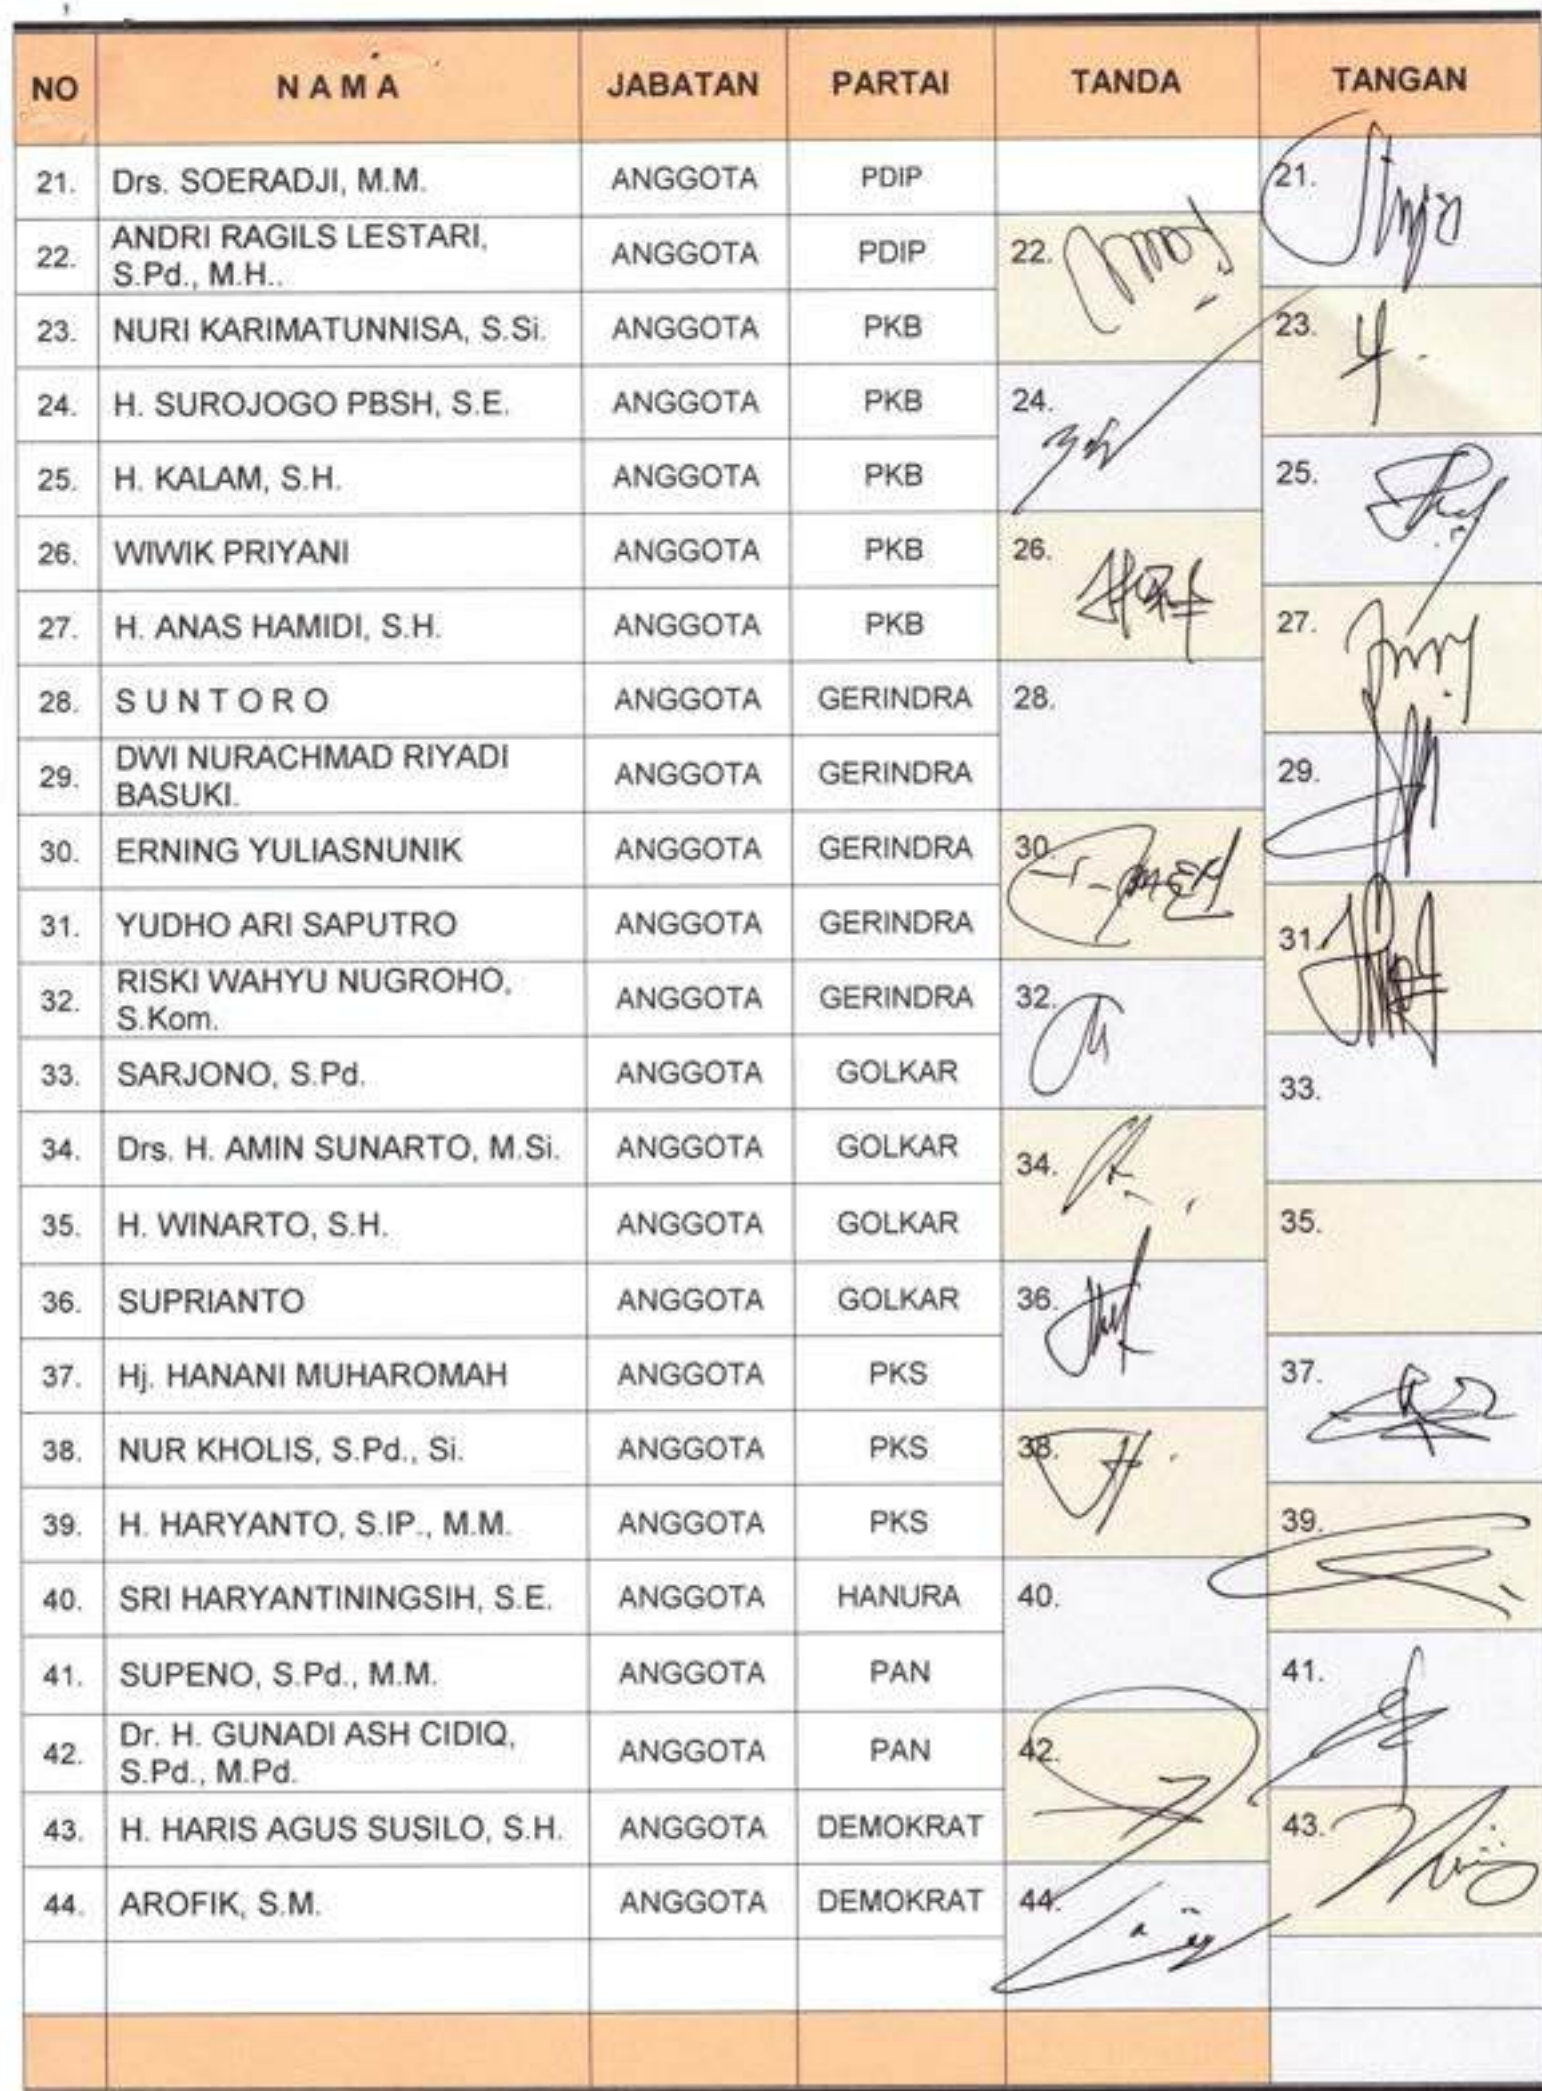 NO N A M A JABATAN PARTAI TANDA TANGAN
21. Drs. SOERADJI, M.M. ANGGOTA PDIP 21.
22. ANDRI RAGILS LESTARI, ANGGOTA PDIP 22.
S.Pd., M.H..
23. NURI KARIMATUNNISA, S.Si. ANGGOTA PKB 23.
24. H. SUROJOGO PBSH, S.E. ANGGOTA PKB 24.
25. H. KALAM, S.H. ANGGOTA PKB 25.
26. WIWIK PRIYANI ANGGOTA PKB 26.
27. H. ANAS HAMIDI, S.H. ANGGOTA PKB 27.
28. S U N T O R O ANGGOTA GERINDRA 28.
29. DWI NURACHMAD RIYADI ANGGOTA GERINDRA 29.
BASUKI.
30. ERNING YULIASNUNIK ANGGOTA GERINDRA 30.
31. YUDHO ARI SAPUTRO ANGGOTA GERINDRA 31.
32. RISKI WAHYU NUGROHO, ANGGOTA GERINDRA 32.
S.Kom.
33. SARJONO, S.Pd. ANGGOTA GOLKAR 33.
34. Drs. H. AMIN SUNARTO, M.Si. ANGGOTA GOLKAR 34.
35. H. WINARTO, S.H. ANGGOTA GOLKAR 35.
36. SUPRIANTO ANGGOTA GOLKAR 36.
37. Hj. HANANI MUHAROMAH ANGGOTA PKS 37.
38. NUR KHOLIS, S.Pd., Si. ANGGOTA PKS 38.
39. H. HARYANTO, S.IP., M.M. ANGGOTA PKS 39.
40. SRI HARYANTININGSIH, S.E. ANGGOTA HANURA 40.
41. SUPENO, S.Pd., M.M. ANGGOTA PAN 41.
42. Dr. H. GUNADI ASH CIDIQ, ANGGOTA PAN 42.
S.Pd., M.Pd.
43. H. HARIS AGUS SUSILO, S.H. ANGGOTA DEMOKRAT 43.
44. AROFIK, S.M. ANGGOTA DEMOKRAT 44.